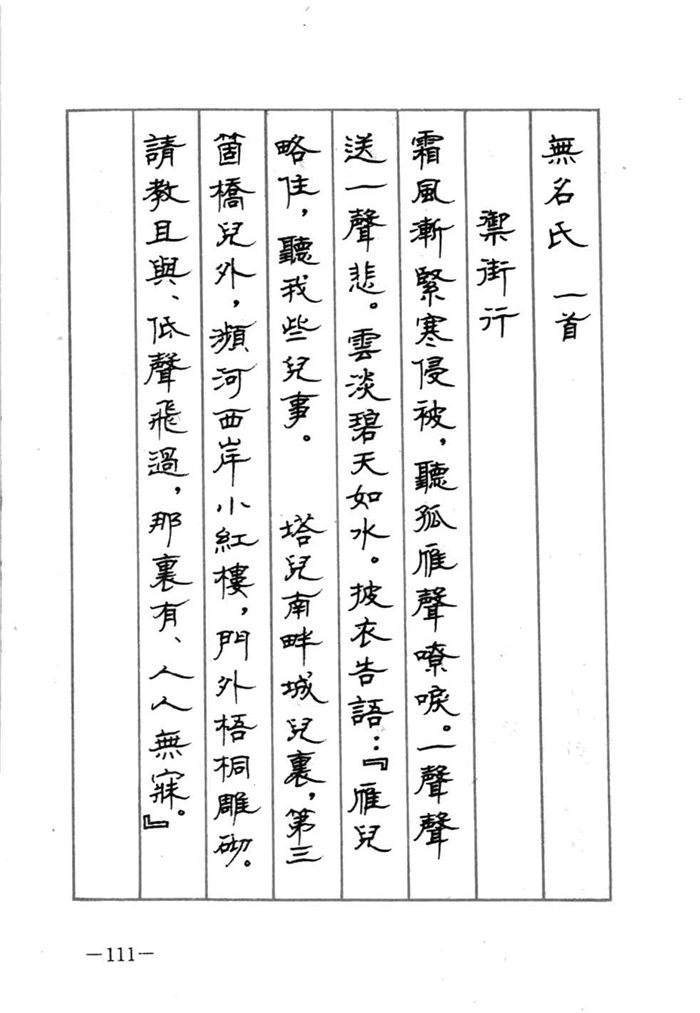 無名氏 一首
禦街行
霜風漸緊寒侵被，聽孤雁聲嘹唳。一聲聲
送一聲悲。雲淡碧天如水。披衣告語：『雁兒
略住，聽我些兒事。 塔兒南畔城兒裏，第三
箇橋兒外，瀕河西岸小紅樓，門外梧桐雕砌。
請教且與、低聲飛過，那裏有、人人無寐。』
—111—